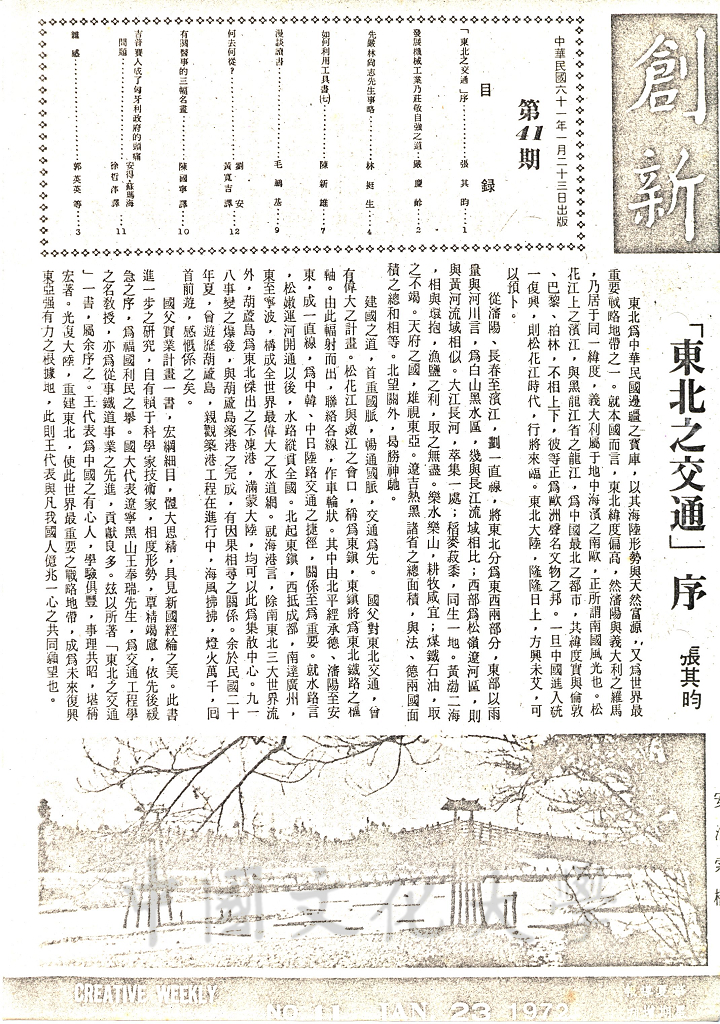 創新
中華民國六十一年一月二十三日出版
第41期
目錄
「東北之交通」序…………張其昀…1
發展機械工業乃莊敬自強之道…嚴慶齡…2
先嚴林尚志先生事略…………林挺生…4
如何利用工具書㈦…………陳新雄…7
漫談讀書…………毛鵬基…9
何去何從?…………劉安 黃寬吉譯…12
有關醫事的三幅名畫…………陳國寧譯…10
吉普賽人成了匈牙利政府的頭痛
問題…………安得·蘇馬海 徐哲萍譯…11
雜感…………郭英英等…3
「東北之交通」序
張其昀
東北為中華民國邊疆之寶庫,以其海陸形勢與天然富源,又為世界最
重要戰略地帶之一。就本國而言,東北緯度偏高,然瀋陽與義大利之羅馬
,乃居于同一緯度,義大利屬于地中海濱之南歐,正所謂南國風光也。松
花江上之濱江,與黑龍江省之龍江,為中國最北之都市,其緯度實與倫敦
、巴黎、柏林,不相上下,彼等正為歐洲聲名文物之邦。一旦中國進入統
一復興,則松花江時代,行將來臨。東北大陸,隆隆日上,方興未艾,可
以預卜。
從瀋陽、長春至濱江,劃一直線,將東北分為東西兩部分,東部以雨
量與河川言,為白山黑水區,幾與長江流域相比;西部為松嶺遼河區,則
與黃河流域相似。大江長河,萃集一處;稻麥菽黍,同生一地。黃渤二海
,相與環抱,漁鹽之利,取之無盡。樂水樂山,耕牧咸宜;煤鐵石油,取
之不竭。天府之國,雄視東亞。遼吉熱黑諸省之總面積,與法、德兩國面
積之總和相等。北望關外,曷勝神馳。
建國之道,首重國脈,暢通國脈,交通為先。 國父對東北交通,曾
有偉大之計畫。松花江與嫩江之會口,稱為東鎮,東鎮將為東北鐵路之樞
軸。由此輻射而出,聯絡各線,作車輪狀。其中由北平經承德、瀋陽至安
東,成一直線,為中韓、中日陸路交通之捷徑,關係至為重要。就水路言
,松嫩運河開通以後,水路縱貫全國。北起東鎮,西抵成都,南達廣州,
東至寧波,構成全世界最偉大之水道網。就海港言,除南東北三大世界流
外,葫蘆島為東北傑出之不凍港,滿蒙大陸,均可以此為集散中心。九一
八事變之爆發,與葫蘆島築港之完成,有因果相尋之關係。余於民國二十
年夏,曾遊歷葫蘆島,親觀築港工程在進行中,海風拂拂,燈火萬千,回
首前遊,感慨係之矣。
國父實業計畫一書,宏綱細目,體大思精,具見新國經綸之美。此書
進一步之研究,自有賴于科學家技術家,相度形勢,覃精竭慮,依先後緩
急之序,為福國利民之舉。國大代表遼寧黑山王奉瑞先生,為交通工程學
之名教授,亦為從事鐵道事業之先進,貢獻良多。茲以所著「東北之交通
」一書,屬余序之。王代表為中國之有心人,學驗俱豐,事理共昭,堪稱
宏著。光復大陸,重建東北,使此世界最重要之戰略地帶,成為未來復興
東亞強有力之根據地,此則王代表與凡我國人億兆一心之共同願望也。
中國文化大學
CREATIVE WEEKLY
NO 41 JAN 23 1972